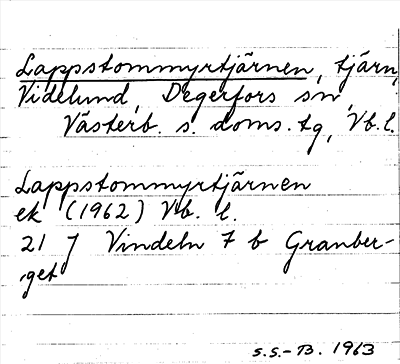 Lappstommyrtjärnen, tjärn,
Videlund, Degerfors sn,
Västerb. s. doms. tg, Vb. l.
Lappstommyrtjärnen
ek (1962) Vb. l.
21 J Vindeln 7 b Granber-
get
S.S.-B. 1963